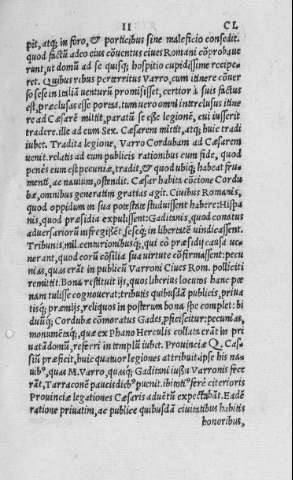 II CL
pit, atq; in foro, & porticibus sine maleficio consedit.
quod factũ adeo eius cõuentus ciues Romani cõprobaue
runt, ut domũ ad se quisq; hospitio cupidissime recipe-
ret. Quibus rebus perterritus Varro, cum itinere cõuer
so sese in Italicã uenturũ promisisset, certior à suis factus
est, præclusas esse portas. tum uero omni interclusus itine
re ad Cæsarẽ mittit, paratũ se esse legionẽ, cui iusserit
tradere. ille ad eum Sex. Cæsarem mittit, atq; huic tradi
iubet. Tradita legione, Varro Cordubam ad Cæsarem
uenit. relatis ad eum publicis rationibus cum fide, quod
penès eum est pecuniæ, tradit, & quod ubiq; habeat fru-
menti, ac nauium, ostendit. Cæsar habita cõcione Cordu
bæ, omnibus generatim gratias agit. Ciuibus Romanis,
quod oppidum in sua potestate studuissent habere: Hispa
nis, quod præsidia expulissent: Gaditanis, quod conatus
aduersariorũ infregissẽt, seseq; in libertatẽ uindicassent.
Tribunis mil. centurionibusq; qui eò præsidij causa ue
nerant, quod eorũ cõsilia sua uirtute cõfirmassent: pecu
nias, quas erãt in publicũ Varroni Ciues Rom. polliciti
remittit. Bona restituit ijs, quos liberius locutos hanc pœ
nam tulisse cognouerat: tributis quibusdã publicis, priua
tisq; præmijs, reliquos in posterum bona spe complet: bi
duũq; Cordubæ cõmoratus Gades, pficiscitur: pecunias,
monumẽtaq; quæ ex phano Herculis collata erãt in pri
uatã domũ, referri in templũ iubet. Prouinciæ Q. Cas
siũ præficit, huic quatuor legiones attribuit: ipse his na
uibꝰ, quas M. Varro, quasq; Gaditani iussu Varronis fece
rãt, Tarraconẽ paucis diebꝰ puenit. ibi totiꝰ ferè citerioris
Prouinciæ legationes Cæsaris aduẽtũ expectabãt. Eadẽ
ratione priuatim, ac publice quibusdã ciuitatibus habitis
honoribus,